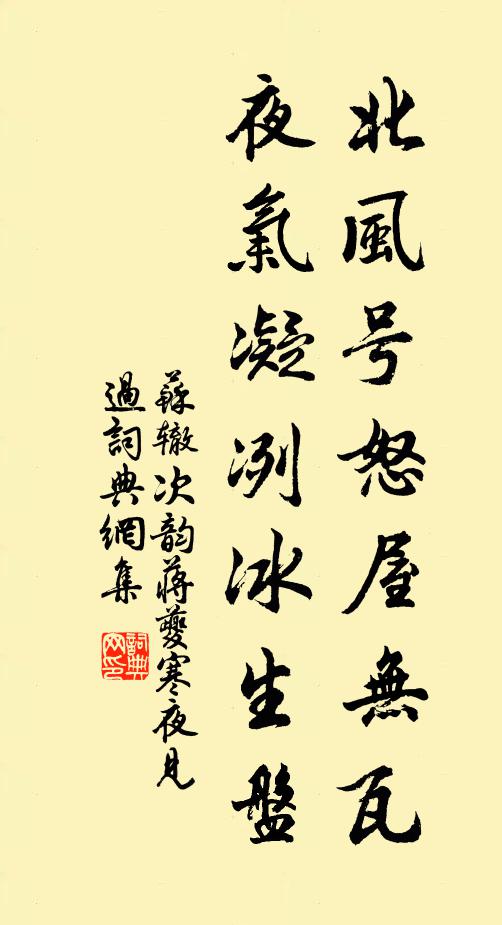 北風号怒屋無瓦
夜氣凝冽冰生盤
蘇辙次韵蔣夔寒夜見
過詞典網集
詞典网印